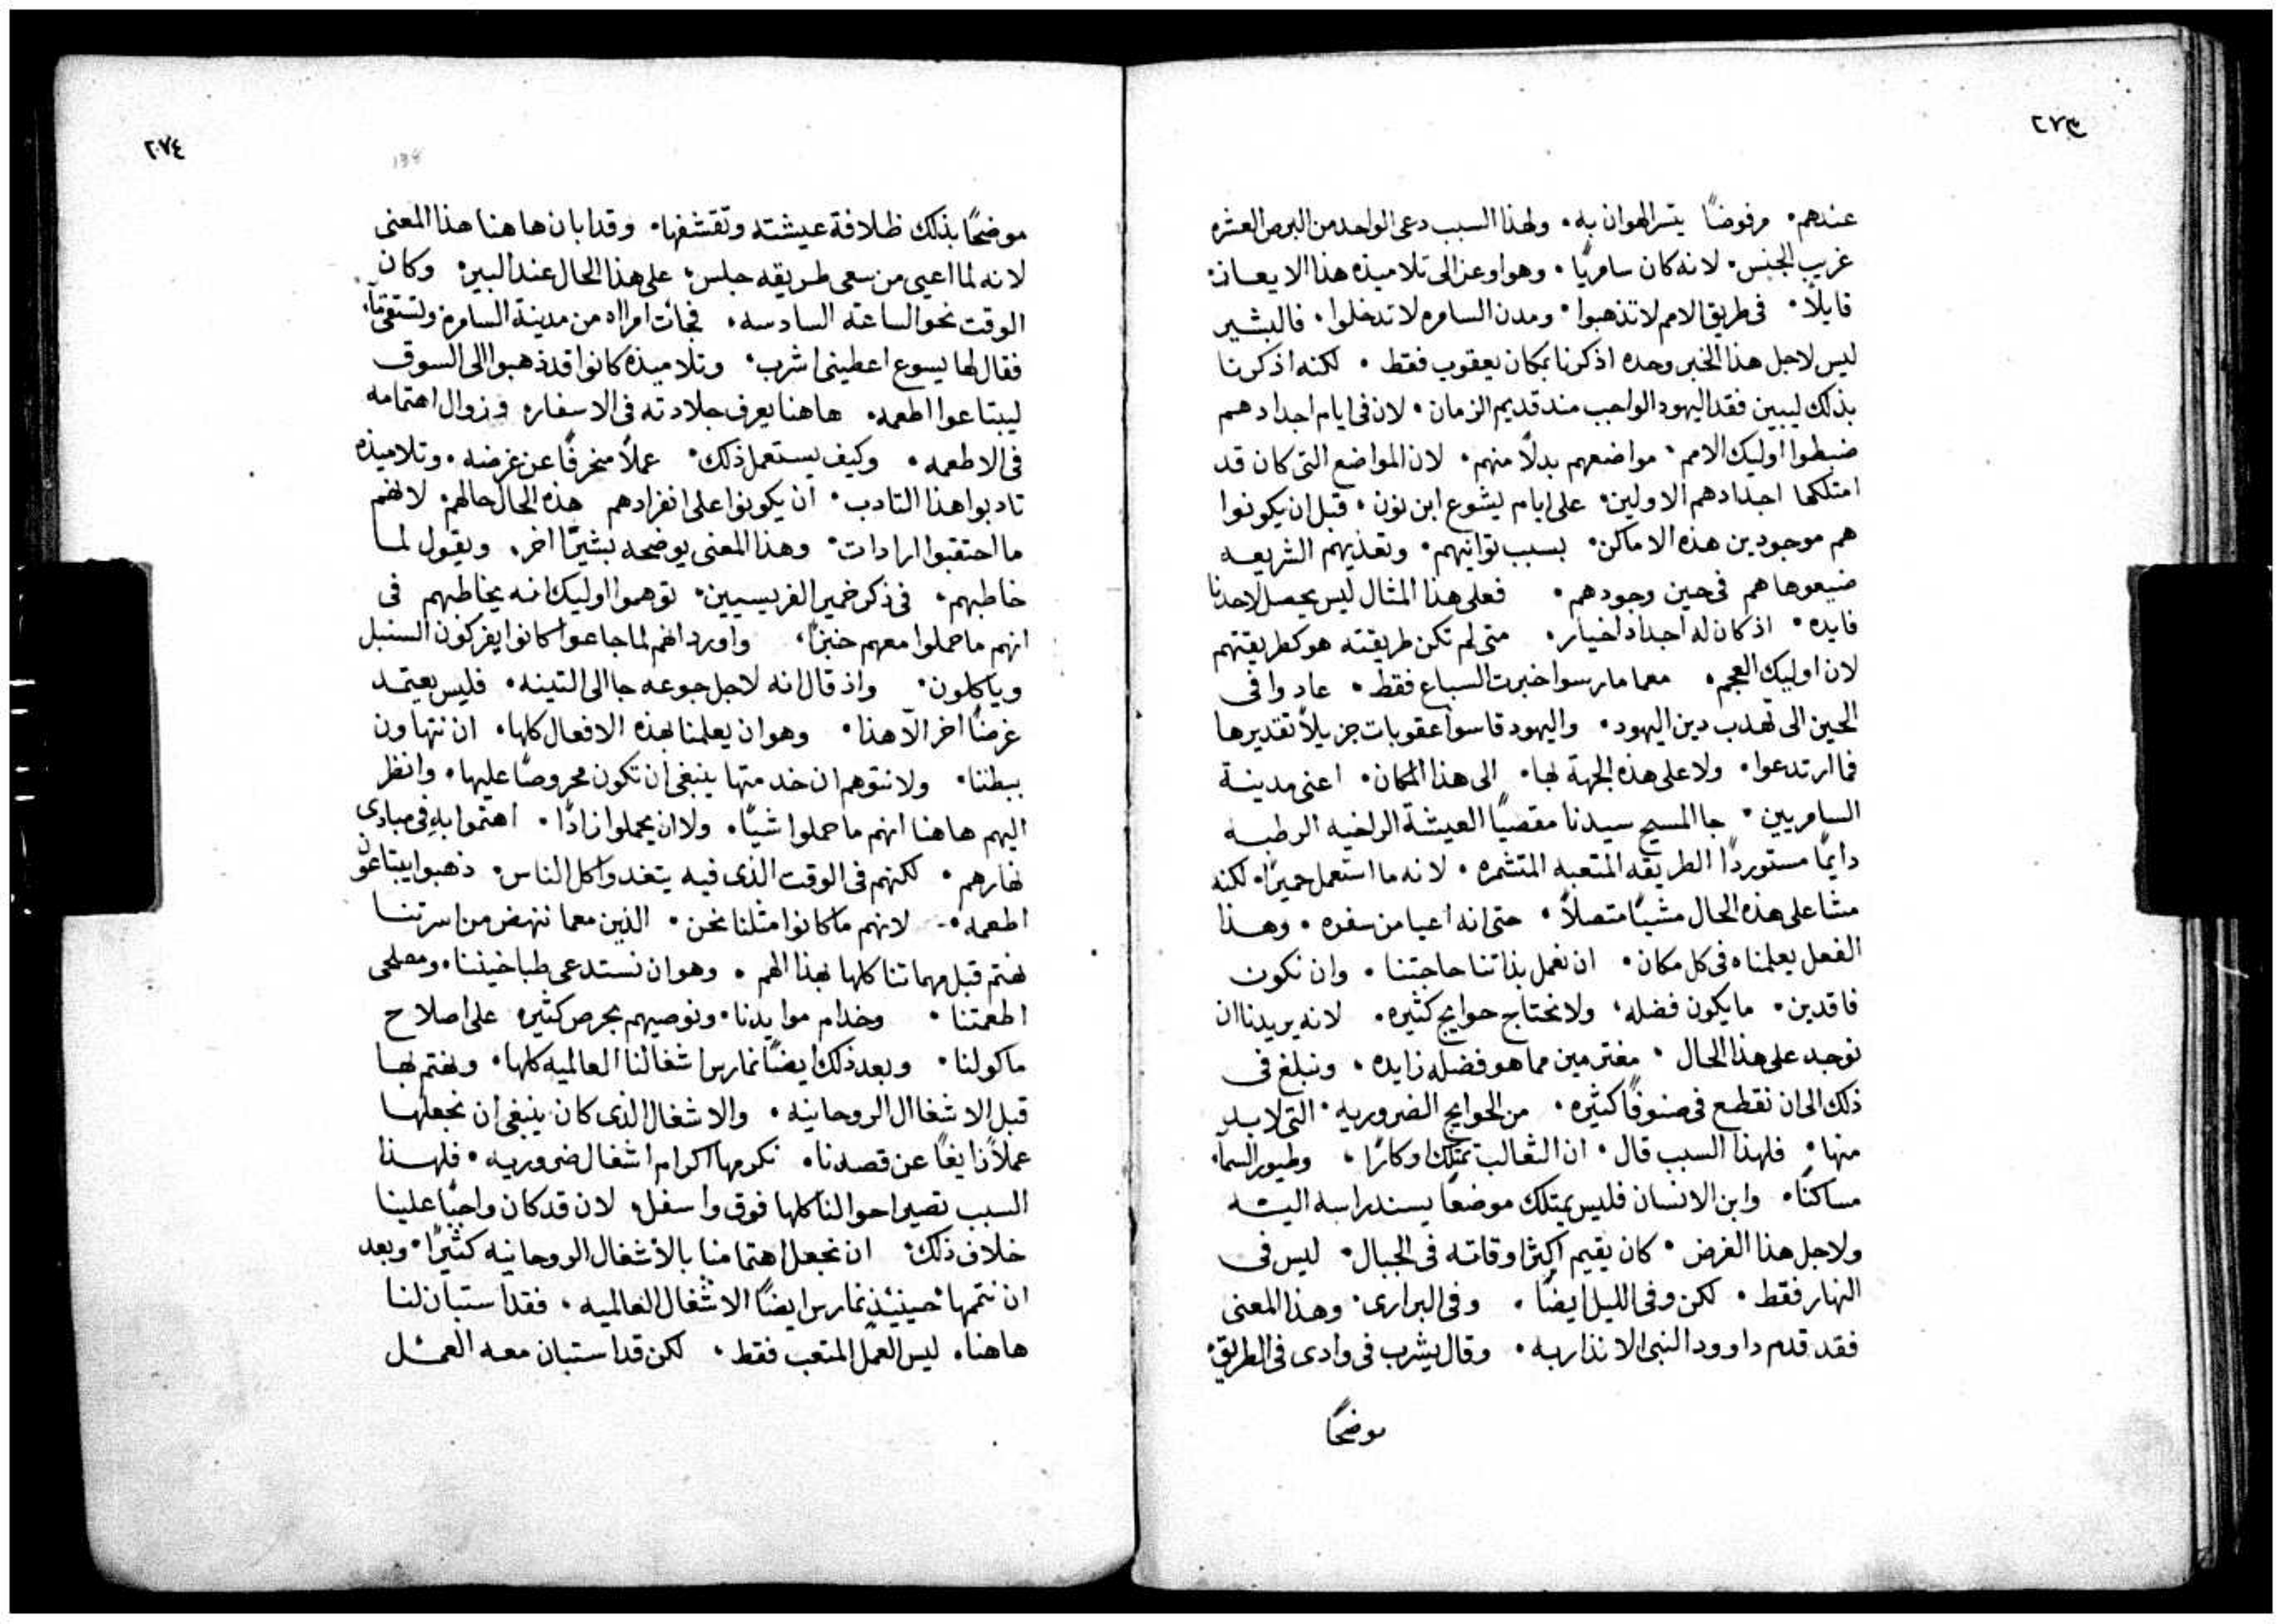 ٢٧٣
عندهم. مرفوضًا يتسر الهوان به. ولهذا السبب دعى الواحد من البرص العشره
غريب الجنس. لانه كان سامريًا. وهو اوعز الى تلاميذه هذا الايعاز.
قايلًا. فى طريق الامم لا تذهبوا. ومدن السامره لا تدخلوا. فالبشير
ليس لاجل هذا الخبر وحده اذكرنا بمكان يعقوب فقط. لكنه اذكرنا
بذلك ليبين فقد اليهود الواجب مند قديم الزمان. لان فى ايام اجدادهم
ضبطوا اوليك الامم. مواضعهم بدلًا منهم. لان المواضع التى كان قد
امتلكها اجدادهم الاولين. على ايام يشوع ابن نون. قبل ان يكونوا
هم موجودين هذه الاماكن. بسبب توانيهم. وتعديهم الشريعه
ضيعوها هم فى حين وجودهم. فعلى هذا المثال ليس يحصل لاحدنا
فايده. اذ كان له اجدادًا اخيار. متى لم تكن طريقته هو كطريقتهم
لان اوليك العجم. معما مارسوا خبرت السباع فقط. عادوا فى
الحين الى تهدب دين اليهود. واليهود قاسوا عقوبات جزيلًا تقديرها
فما ارتدعوا. ولا على هذه الجهة بها. الى هذا المكان. اعنى مدينة
السامريين. جا المسيح سيدنا مقصيًا العيشة الراخيه الرطبه
دايمًا مستوردًا الطريقه المتعبه المتشمره. لانه ما استعمل حميرًا. لكنه
مشا على هذه الحال مشيًا متصلًا. حتى انه اعيا من سفره. وهذا
الفعل يعلمناه فى كل مكان. ان نعمل بذاتنا حاجتنا. وان نكون
فاقدين. ما يكون فضله. ولا نحتاج حوايج كثيره. لانه يريدنا ان
نوجد على هذا الحال. مغترمين مما هو فضله زايده. ونبلغ فى
ذلك الى ان نقطع فى صنوفًا كثيره. من الحوايج الضروريه. التى لابد
منها. فلهذا السبب قال. ان الثعالب تمتلك اوكارًا. وطيور السمآ.
مساكنًا. وابن الانسان فليس يمتلك موضعًا يسند راسه اليـه
ولاجل هذا الغرض. كان يقيم اكثر اوقاته فى الجبال. ليس فى
النهار فقط. لكن وفى الليل ايضًا. وفى البرارى. وهذا المعنى
فقد قدم داوود النبى الانذار به. وقال يشرب فى وادى فى الطريق.
موضحًا
٢٧٤
138
موضحًا بذلك ظلافة عيشته وتقشفها. وقد ابان هاهنا هذا المعنى
لانه لما اعيى من سعى طريقه جلس. على هذا الحال عند البير. وكان
الوقت نحو الساعه السادسه. فجات امراه من مدينة السامره لتستقى مآ.
فقال لها يسوع اعطينى اشرب. وتلاميذه كانوا قد ذهبوا الى السوق
ليبتاعوا اطعمه. هاهنا يعرف جلادته فى الاسفار. وزوال اهتمامه
فى الاطعمه. وكيف يستعمل ذلك. عملًا منحرفًا عن غرضه. وتلاميذه
تادبوا هذا التادب. ان يكونوا على انفرادهم هذه الحال حالهم. لانهم
ما احتقبوا ارادات. وهذا المعنى يوضحه بشيرًا اخر. ويقول لما
خاطبهم. فى ذكر خمير الفريسيين. توهموا اوليك انه يخاطبهم فى
انهم ما حملوا معهم خبزًا. واورد انهم لما جاعوا كانوا يفركون السنبل
وياكلون. واذ قال انه لاجل جوعه جا الى التينه. فليس يعتمد
غرضًا اخر الّا هذا. وهو ان يعلمنا بهذه الافعال كلها. ان نتهاون
ببطننا. ولا نتوهم ان خدمتها ينبغى ان تكون محروصًا عليها. وانظر
اليهم هاهنا انهم ما حملوا شيًا. ولا ان يحملوا زادًا. اهتموا به فى مبادى
نهارهم. لكنهم فى الوقت الذى فيه يتغدوا كل الناس. ذهبوا يبتاعون
اطعمه. لانهم ما كانوا مثلنا نحن. الذين معما ننهض من اسرتنا
نهتم قبل مهماتنا كلها بهذا الهم. وهو ان نستدعى طباخيننا. ومصلحى
اطعمتنا. وخدام موايدنا. ونوصيهم بحرص كثيره على اصلاح
ماكولنا. وبعد ذلك ايضًا نمارس اشغالنا العالميه كلها. ونهتم بها
قبل الاشغال الروحانيه. والاشغال الذى كان ينبغى ان نجعلها
عملًا زايغًا عن قصدنا. نكرمها اكرام اشغال ضروريه. فلهذا
السبب تصير احوالنا كلها فوق واسفل. لان قد كان واجبًا علينا
خلاف ذلك. ان نجعل اهتمامنا بالاشغال الروحانيه كثيرًا. وبعد
ان نتمها حينيذٍ نمارس ايضًا الاشغال العالميه. فقد استبان لنا
هاهنا. ليس العمل المتعب فقط. لكن قد استبان معه العمل